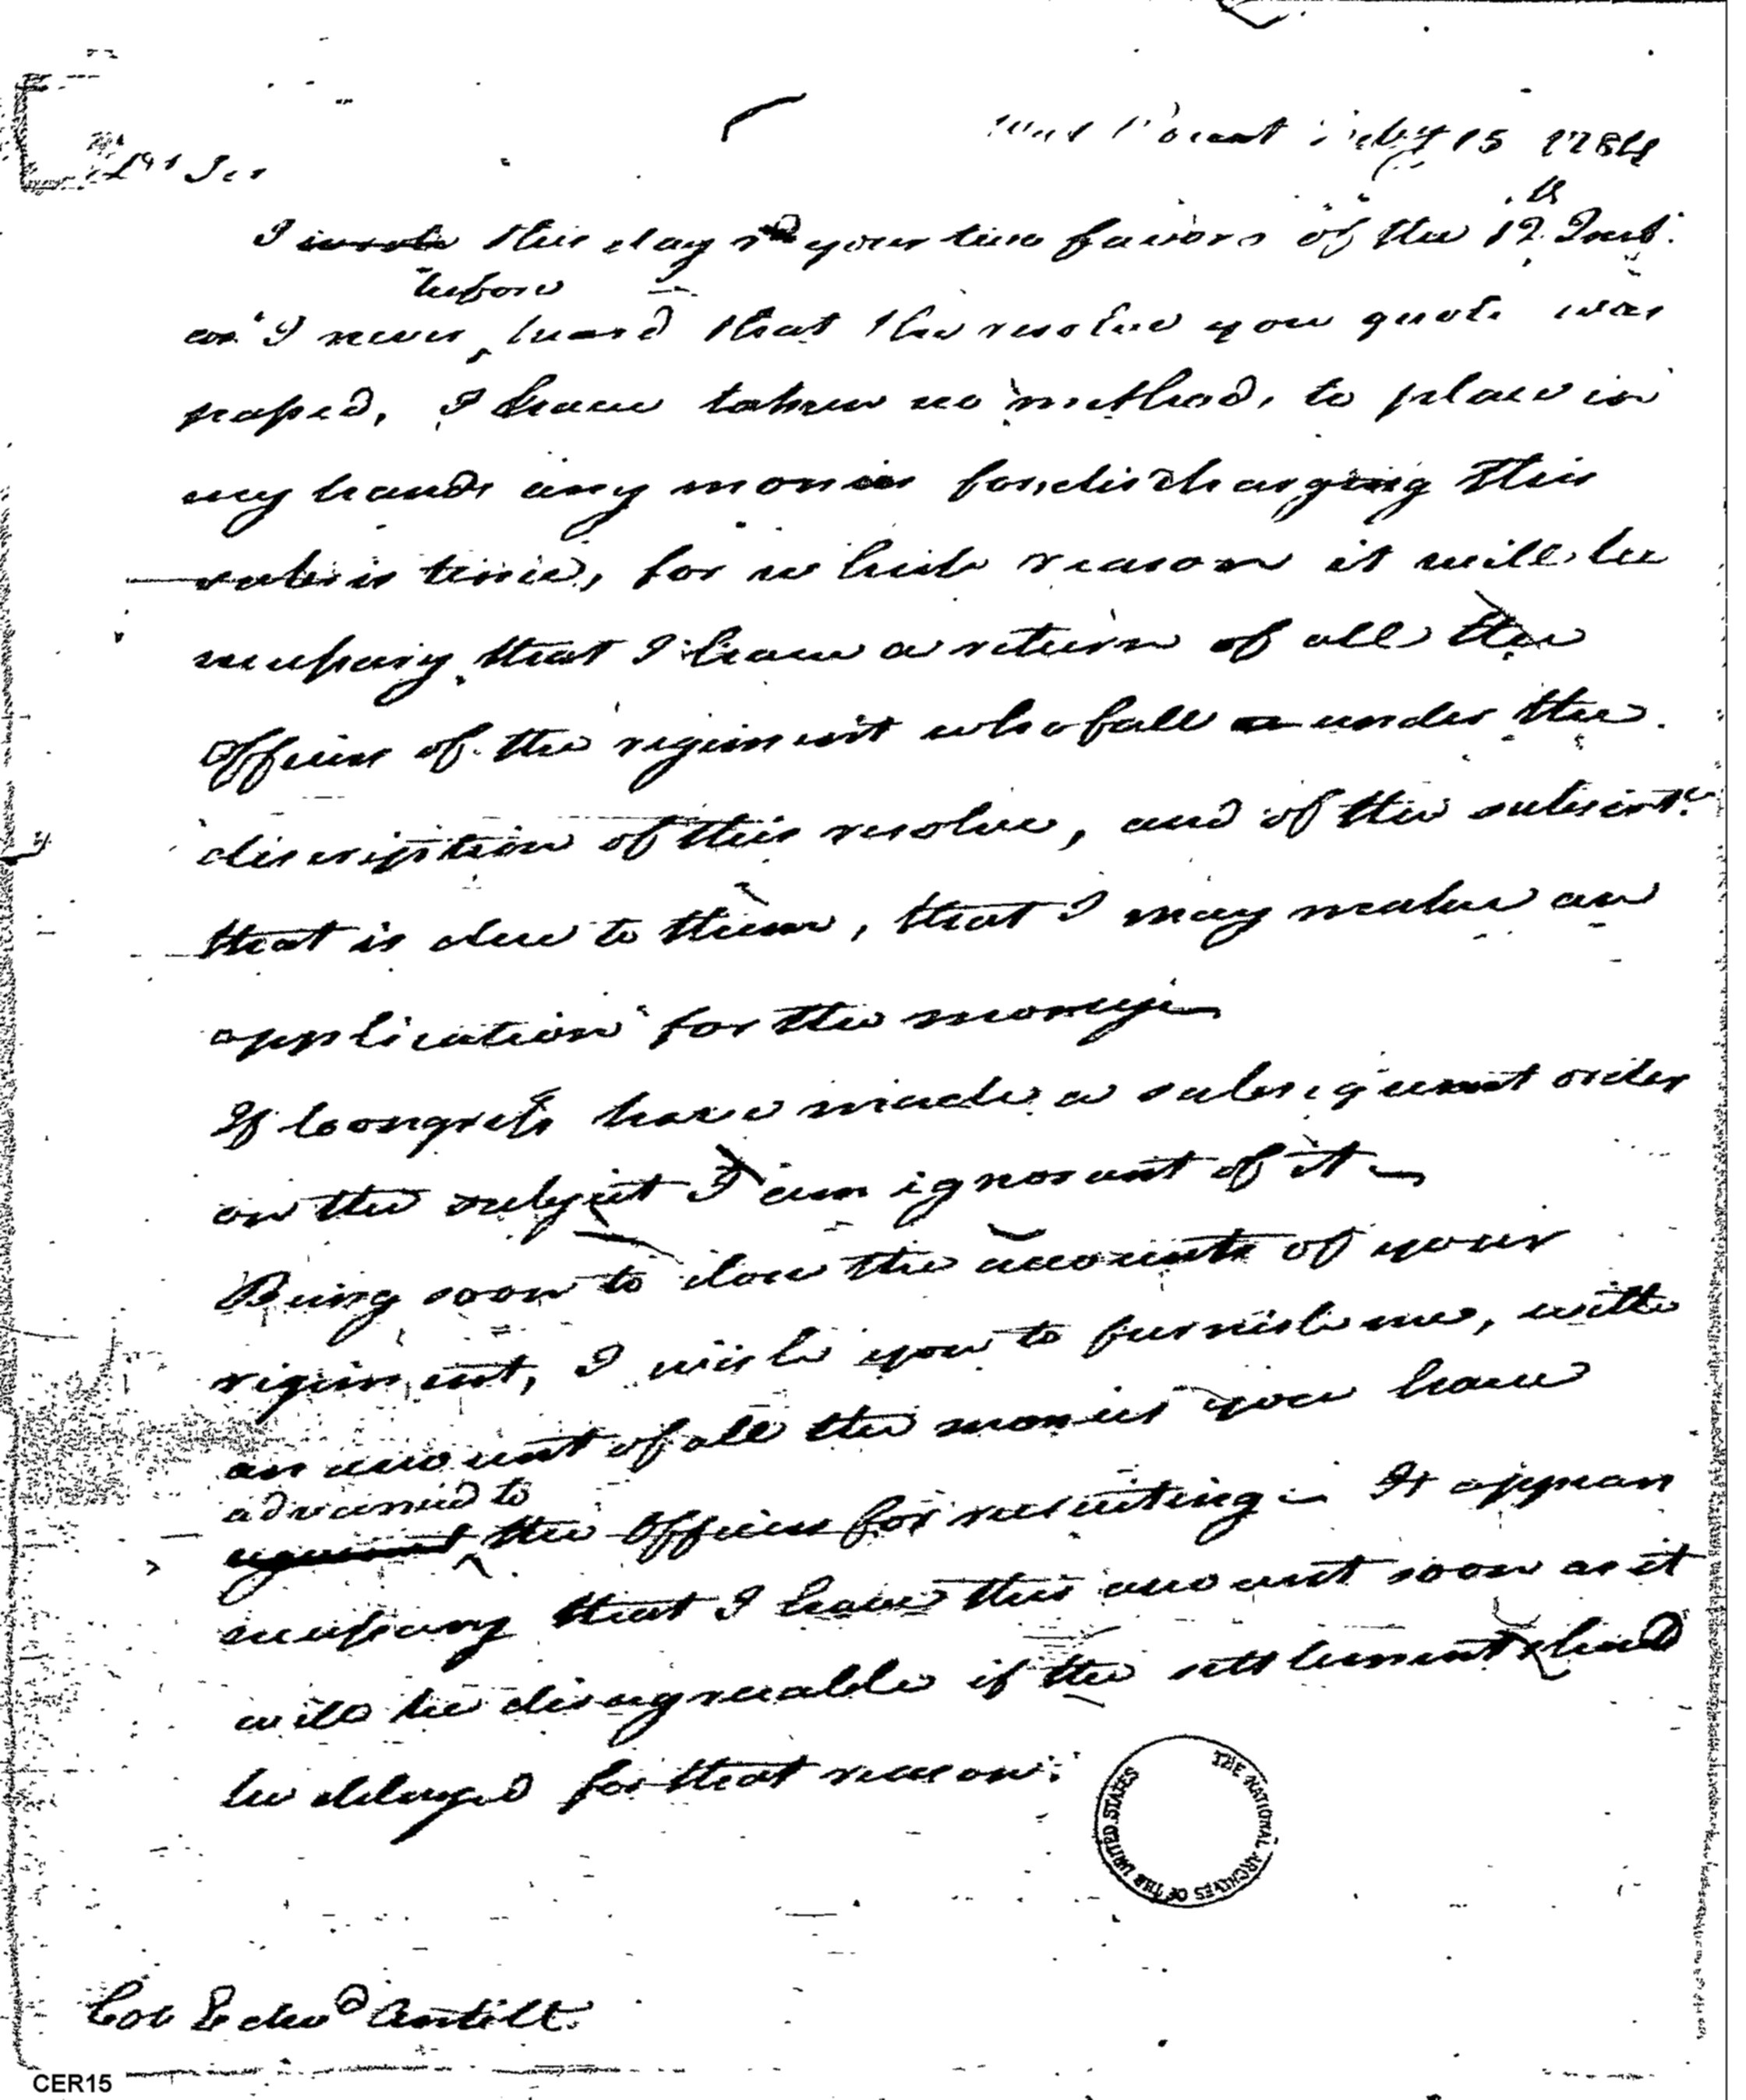 July 15 1784
Dr Sir
I wrote this day rd your two favors of the 12th Inst.
before
as I never heard that the resolve you quote was
passed, I have taken no method, to place in
my hands any monies for discharging this
subsistence, for which reason it will be
necessary that I have a return of all the
Officers of the regiment who fall under the
discription of this resolve, and of the subsistce
that is due to them, that I may make an
application for the money
If Congress have made a subsequent order
on the subject I am ignorant of it
Being soon to close the accounts of your
regiment, I wish you to furnish me, with
an account of all the monies you have
advanced to
against the Officers for recruiting - It appears
necessary that I have this account soon as it
will be disagreeable if the settlement should
be delayed for that reason.
THE NATIONAL ARCHIVES OF THE UNITED STATES
Col Edwd Antill
CER15